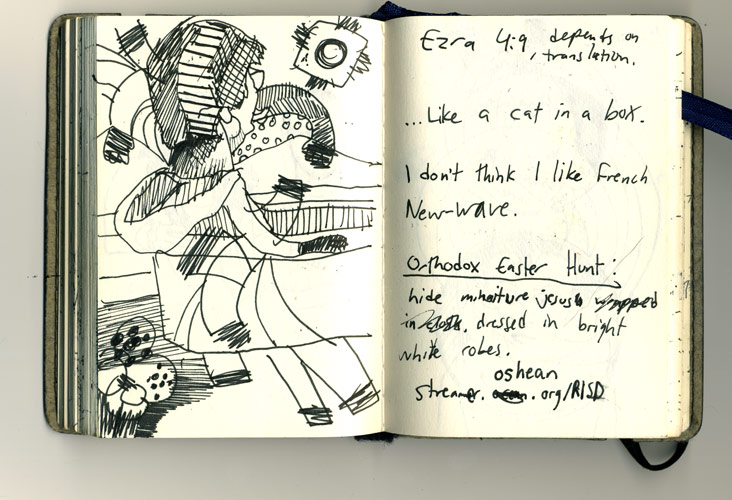 Ezra 4:9 depends on
translation.
...Like a cat in a box.
I don't think I like French
New-wave.
Orthodox Easter Hunt:
hide minaiture jesus wrapped
in cloth. dressed in bright
white robes.
oshean
streamer. ocean.org/RISD